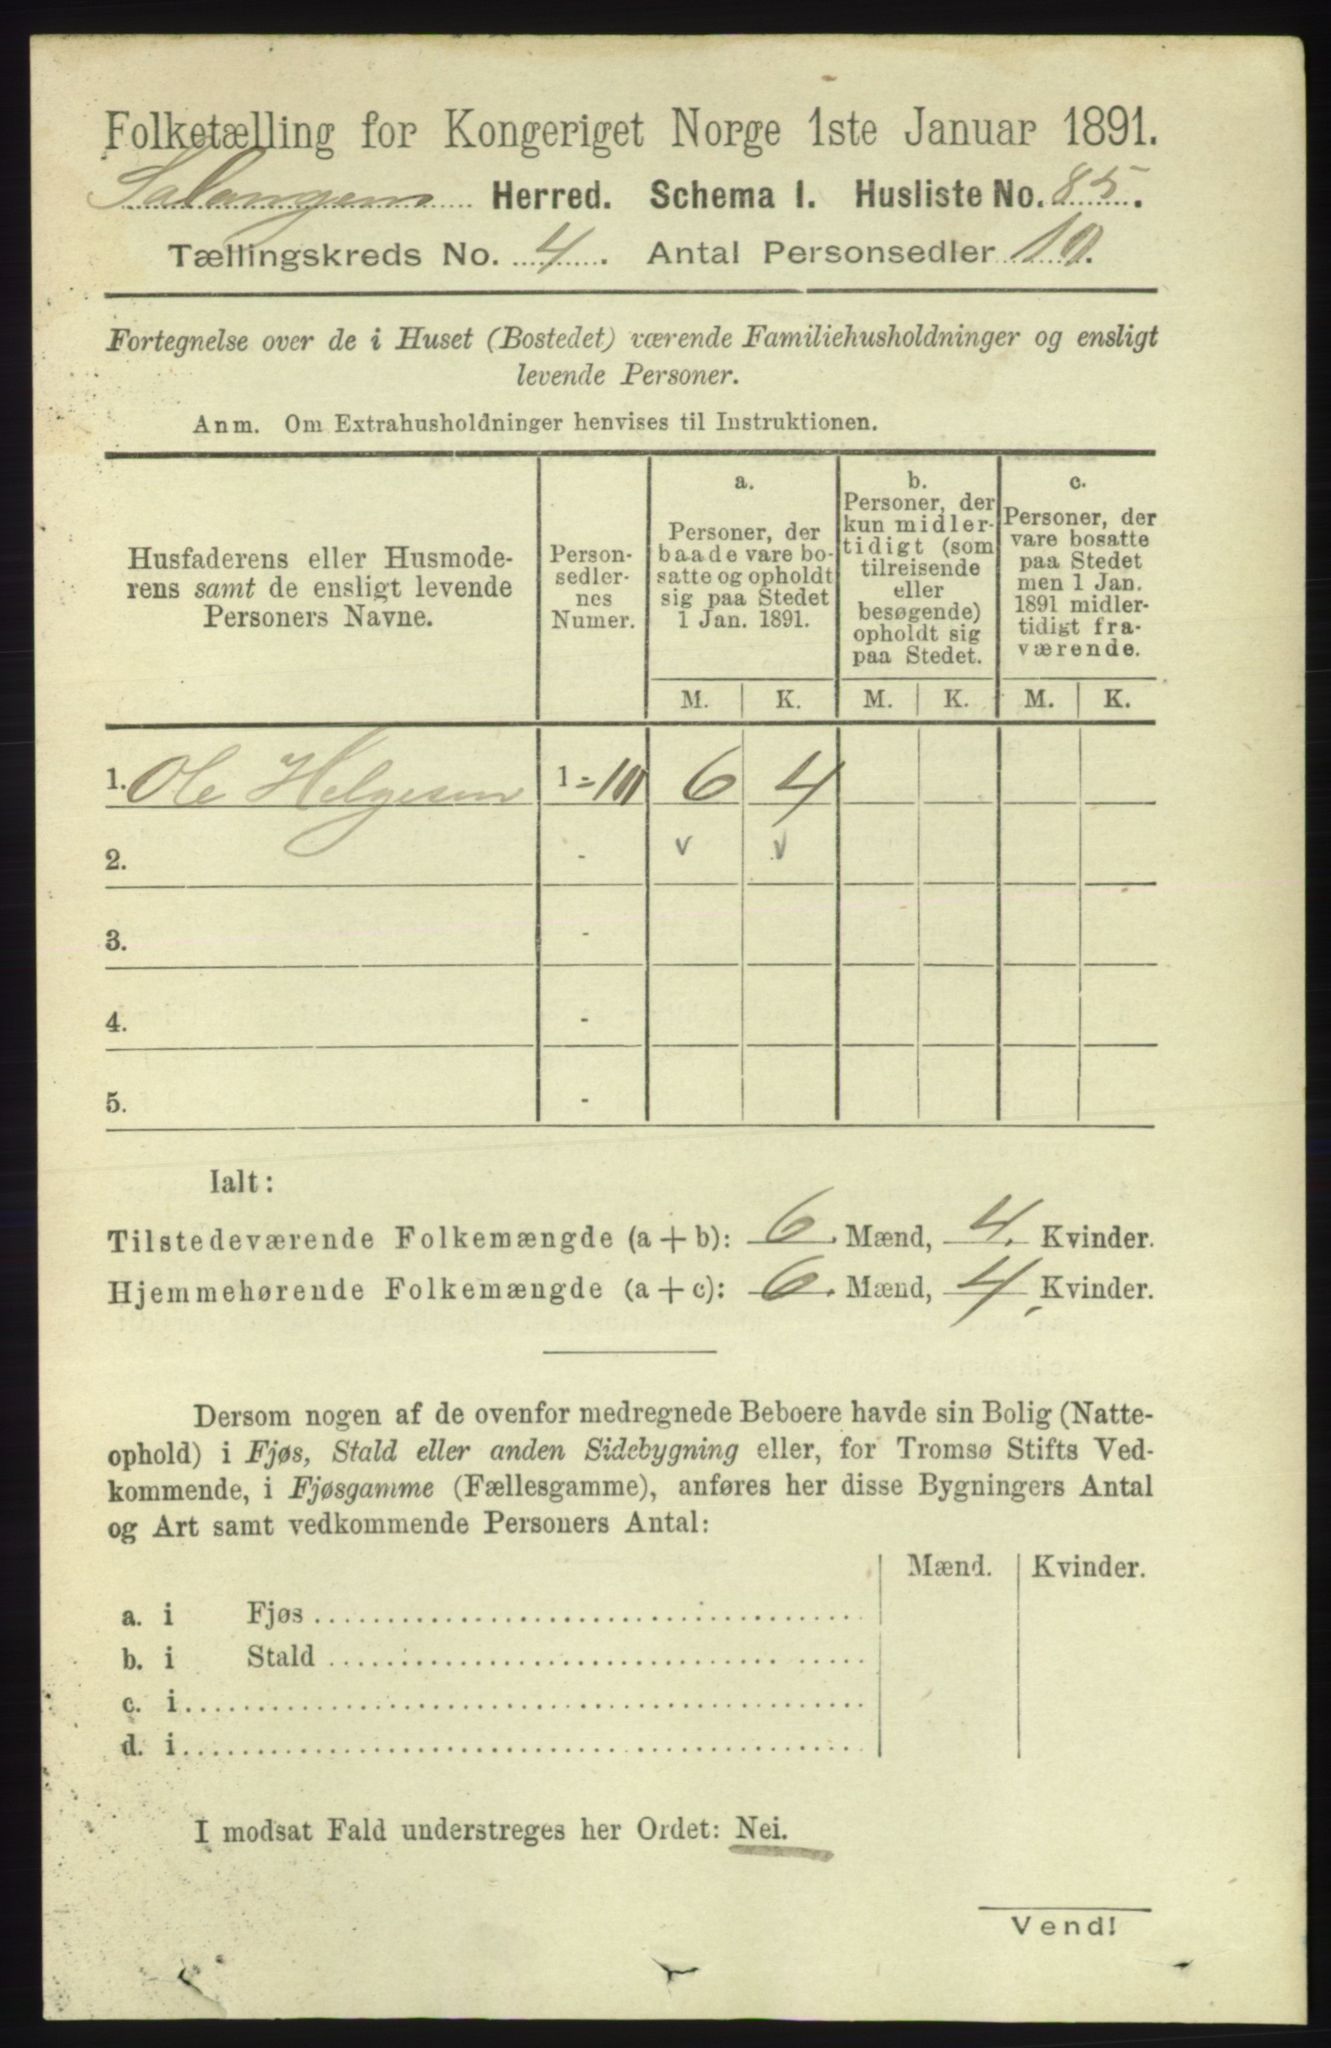 Folketælling for Kongeriget Norge 1ste Januar 1891.
Salangens Herred. Schema I. Husliste No. 85.
Tællingskreds No. 4. Antal Personsedler 10.
Fortegnelse over de i Huset (Bostedet) værende Familiehusholdninger og ensligt
levende Personer.
Anm. Om Extrahusholdninger henvises til Instruktionen.
Husfaderens eller Husmode-
rens samt de ensligt levende
Personers Navne.
Person-
sedler-
nes
Numer.
a.
Personer, der
baade vare bo-
satte og opholdt
sig paa Stedet
1 Jan. 1891.
b.
Personer, der
kun midler-
tidigt (som
tilreisende
eller
besøgende)
opholdt sig
paa Stedet.
c.
Personer, der
vare bosatte
paa Stedet
men 1 Jan.
1891 midler-
tidigt fra-
værende.
M. K. M. K. M. K.
1. Ole Helgesen 1 - 10 6 4
2. - v v
3. -
4. -
5. -
Ialt:
Tilstedeværende Folkemængde (a+b): 6. Mænd, 4. Kvinder.
Hjemmehørende Folkemængde (a+c): 6. Mænd, 4. Kvinder.
Dersom nogen af de ovenfor medregnede Beboere havde sin Bolig (Natte-
ophold) i Fjøs, Stald eller anden Sidebygning eller, for Tromsø Stifts Ved-
kommende, i Fjøsgamme (Fællesgamme), anføres her disse Bygningers Antal
og Art samt vedkommende Personers Antal:
Mænd. Kvinder.
a. i Fjøs
b. i Stald
c. i
d. i
I modsat Fald understreges her Ordet: Nei.
Vend!